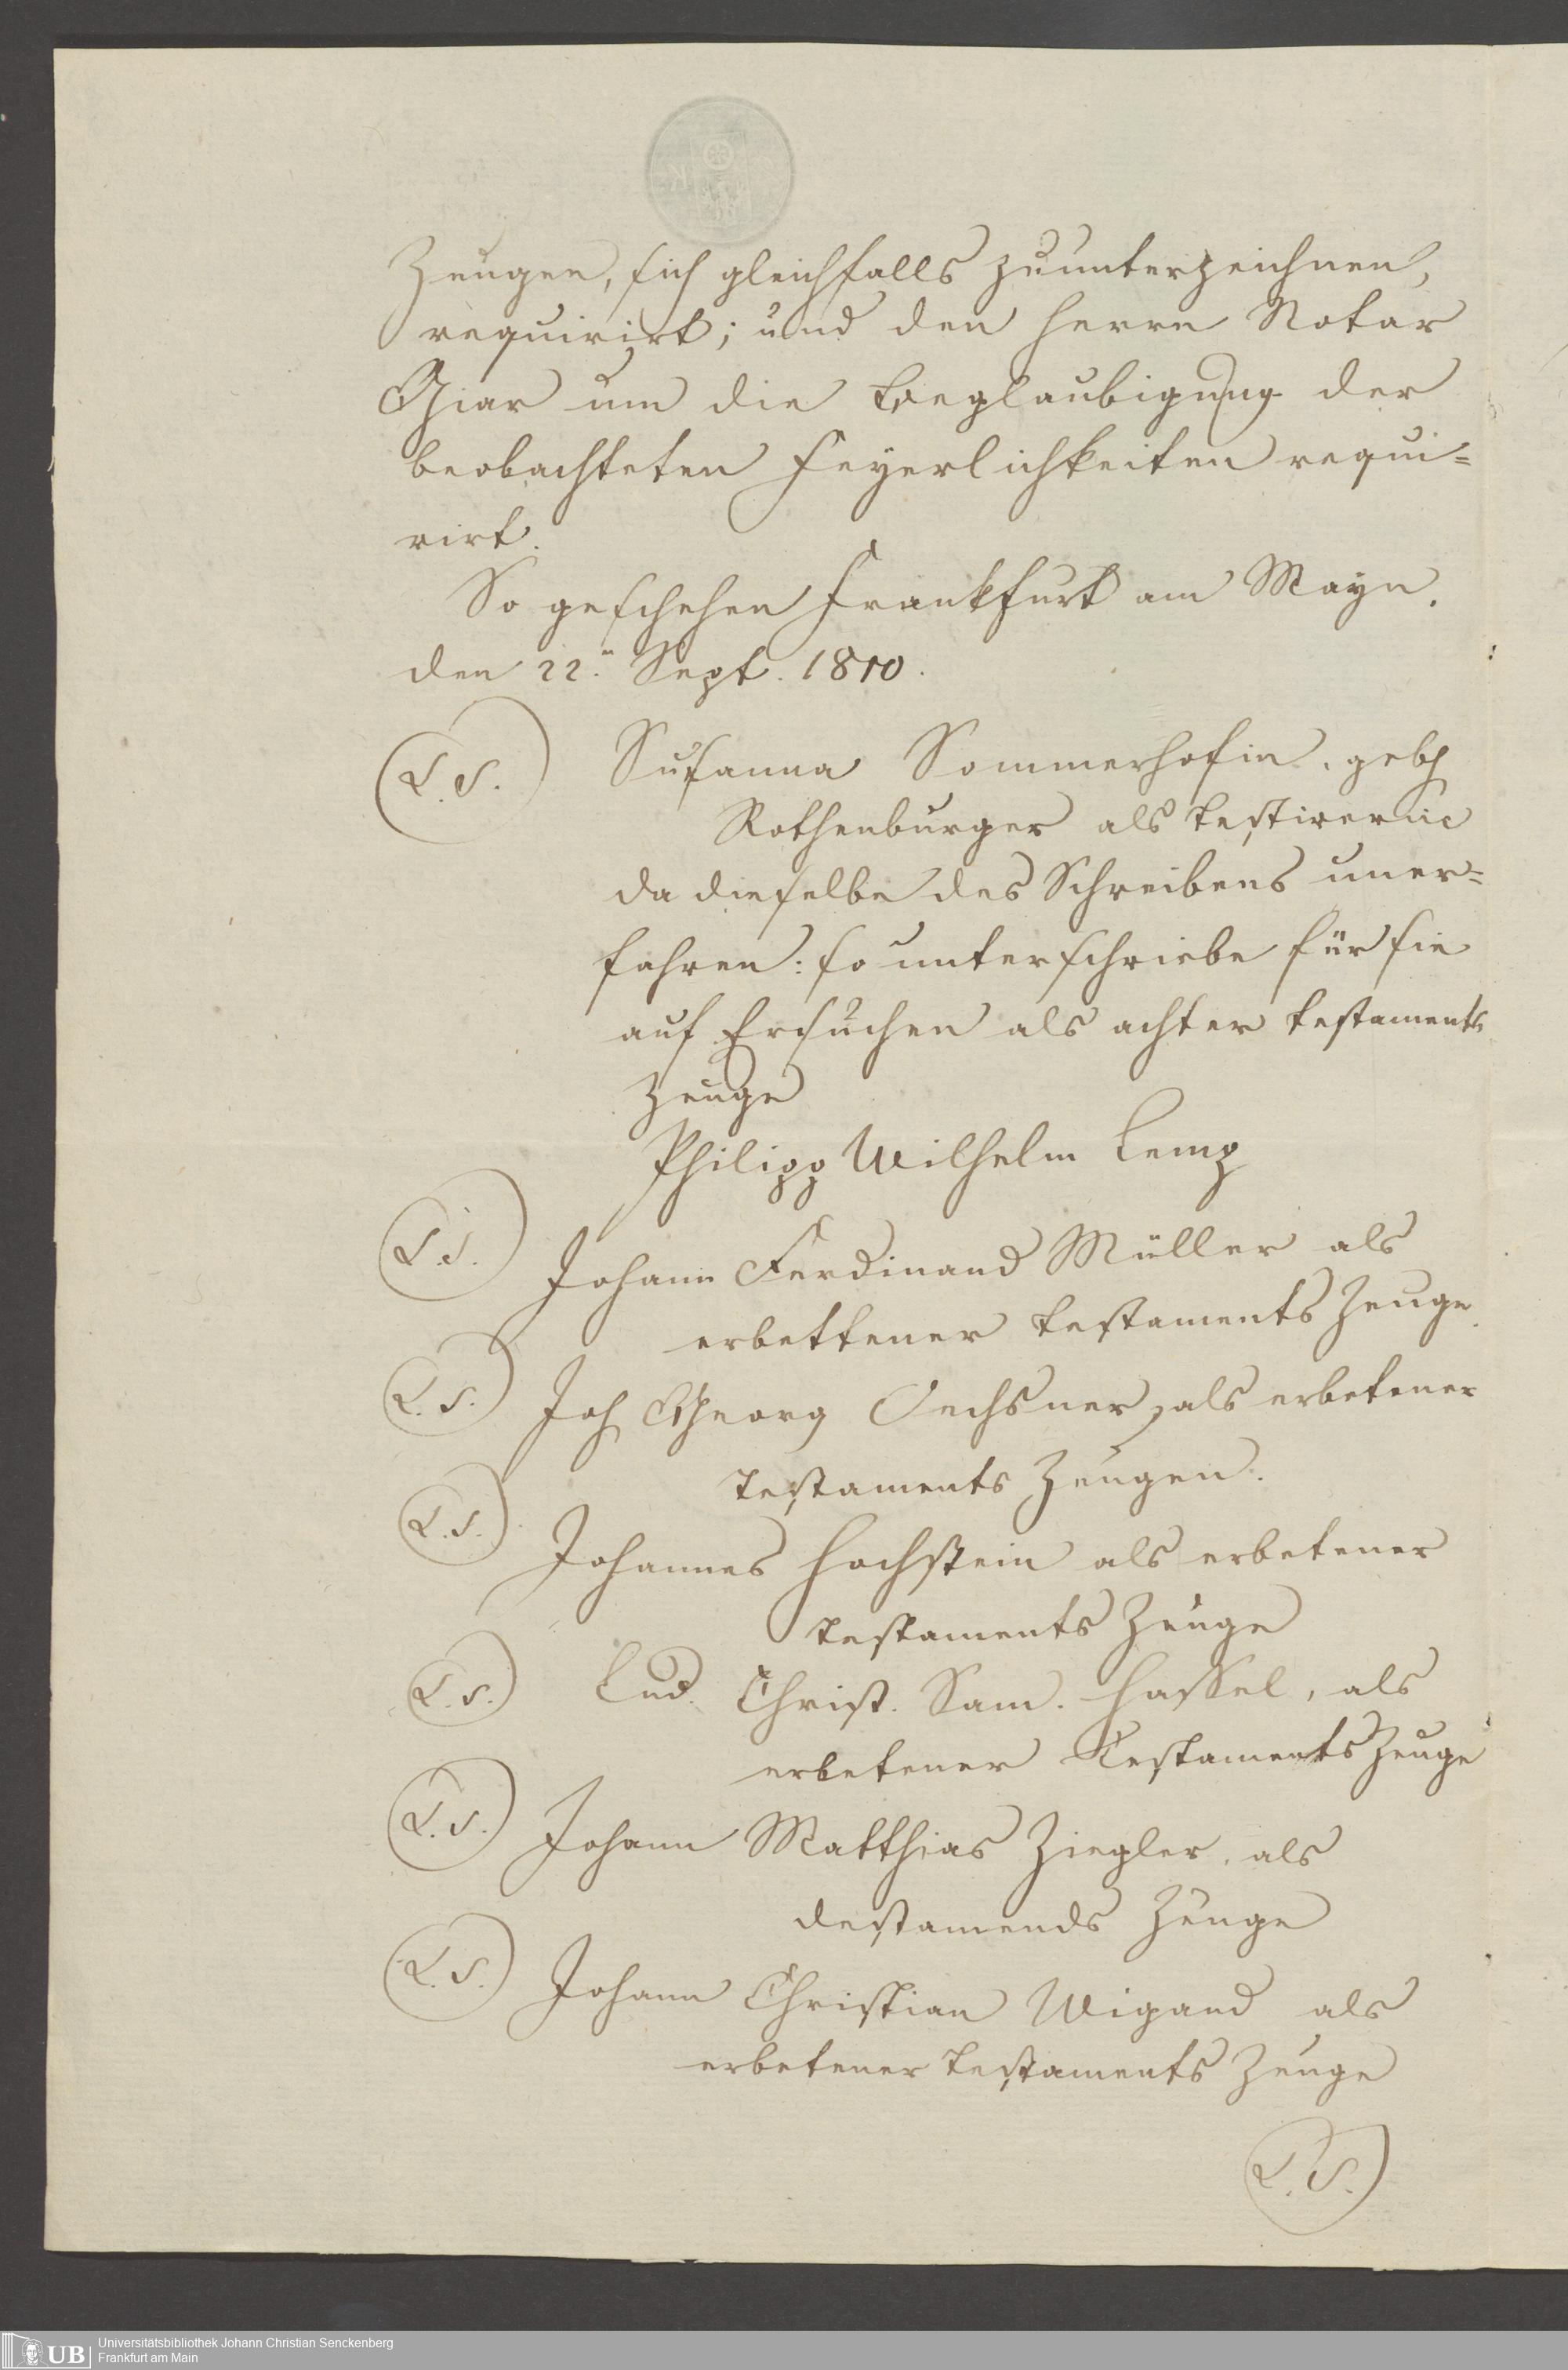 Zeugen, sich gleichfalls zuunterzeichnen,
requirirt; und den Herrn Notar
Giar um die Beglaubigung der
beobachteten Feyerlichkeiten requi=
rirt.
So geschehen Frankfurt am Mayn.
den 22.n Sept. 1810.
L.S. Susanna Sommerhofin. geb
Rothenburger als testirerin
da dieselbe des Schreibens uner=
fahren: so unterschriebe für sie
auf Ersuchen als achter testaments
Zeuge
Philipp Wilhelm Lemp
L.S. Johann Ferdinand Müller als
erbettener testaments Zeuge.
L.S. Joh Georg Oechsner, als erbetener
testaments Zeugen.
L.S. Johannes Hochstein als erbetener
testaments Zeuge
L.S. Lud. Christ. Sam. Hassel, als
erbetener Testaments Zeuge
L.S. Johann Matthias Ziegler, als
destamends Zeuge
L.S. Johann Christian Wigand als
erbetener testaments Zeuge
L.S.
UB Universitätsbibliothek Johann Christian Senckenberg
Frankfurt am Main